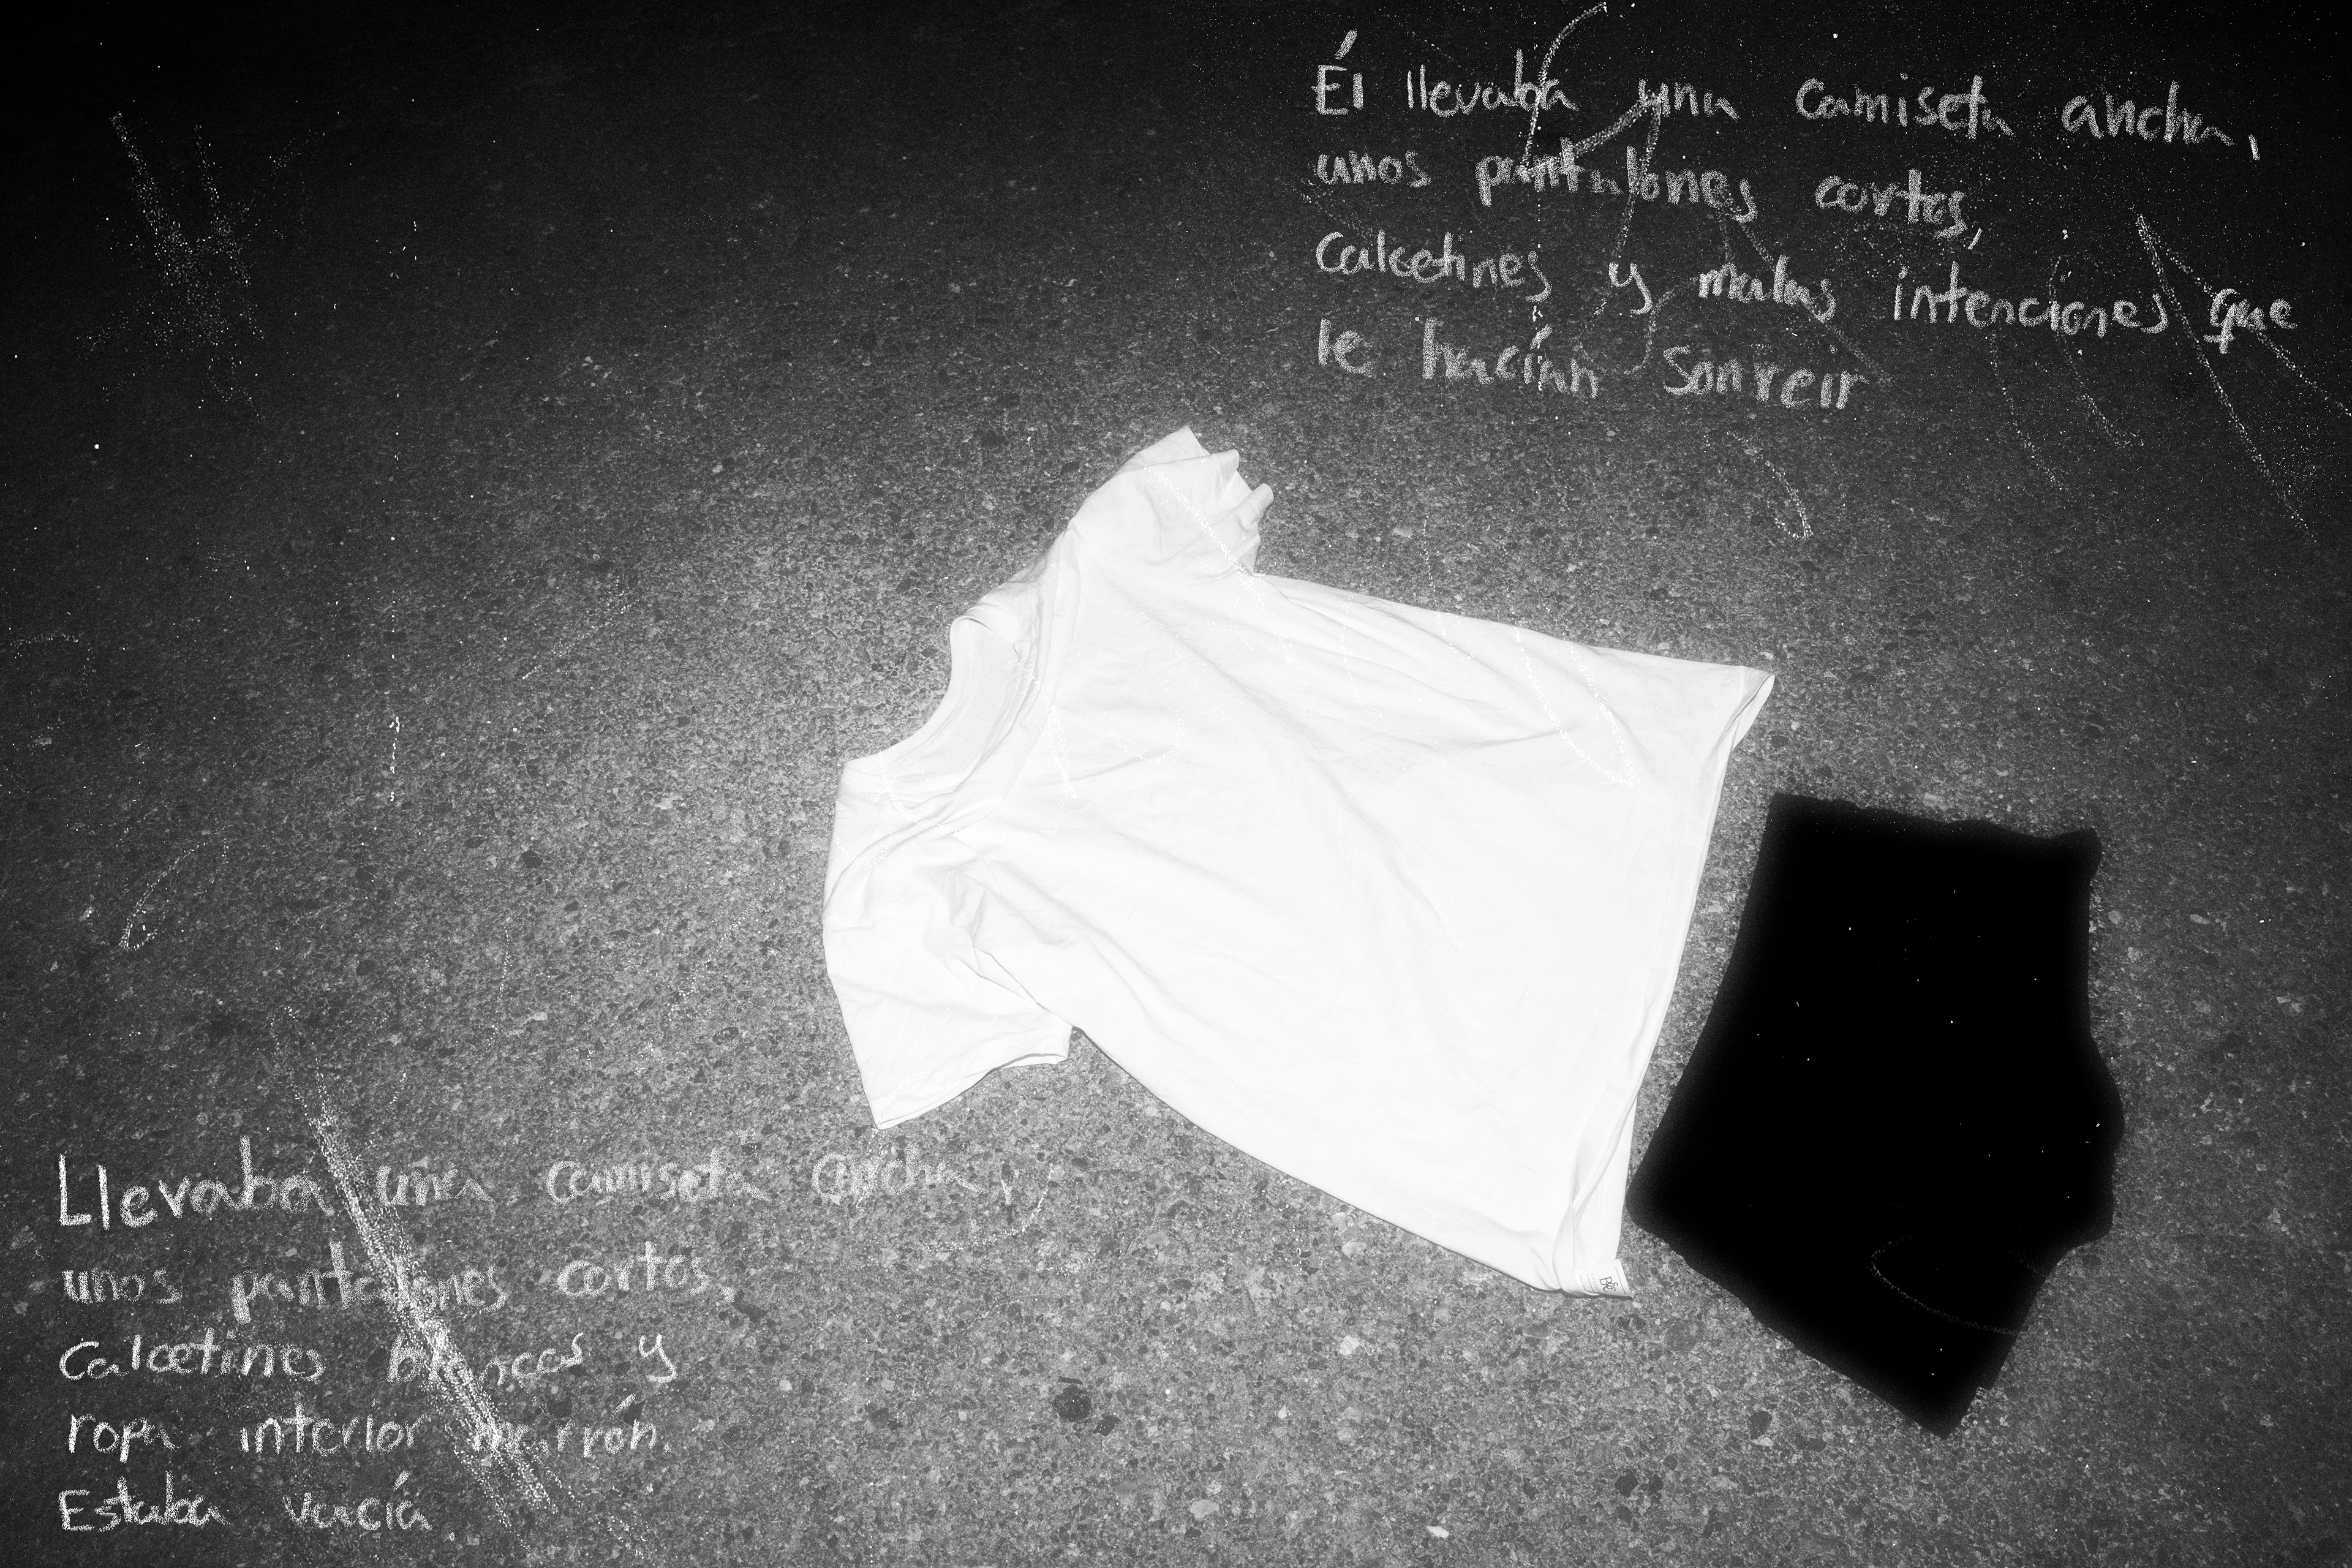 Él llevaba una camiseta ancha,
unos pantalones cortos,
calcetines y malas intenciones que
le hacían sonreír
Llevaba una camiseta ancha,
unos pantalones cortos,
Calcetines blancos y
ropa interior marrón.
Estaba vacía.